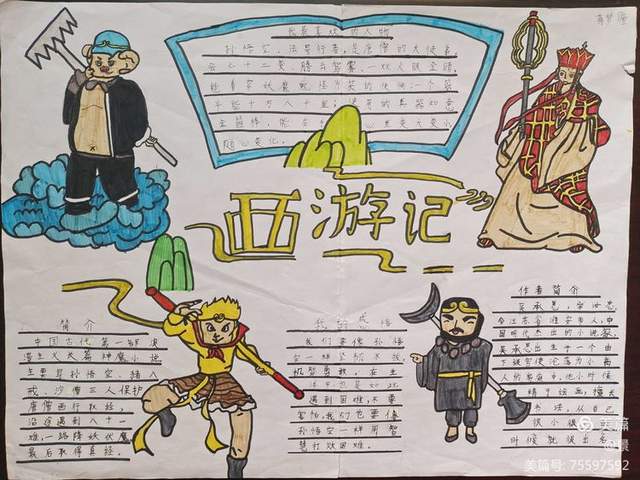 我最喜欢的人物
孙悟空，法号行者，是唐僧的大徒弟
会七十二变、腾云驾雾。一双火眼金睛
能看穿妖魔鬼怪
十万八千里
金箍棒
随心变化。
西游记
简介
中国古代第一部浪
漫主义长篇神魔小说
主要是孙悟空、猪八
戒、沙僧三人保护
唐僧西行取经，
沿途遇到八十一
难，一路降妖伏魔
最后取得真经。
我的感悟
我们要像孙悟
空一样坚韧不拔，
机智勇敢，在生
遇到困难，不要
害怕，我们也要像
孙悟空一样用智
慧打败困难。
作者简介
吴承恩，
今江苏省淮安市人，中
国明代杰出的小说家
吴承恩出生于一个由
下级官吏沦为小商
人的家庭
绘画，擅长
书法，
时候就很出名
美篇
美篇号: 75597592